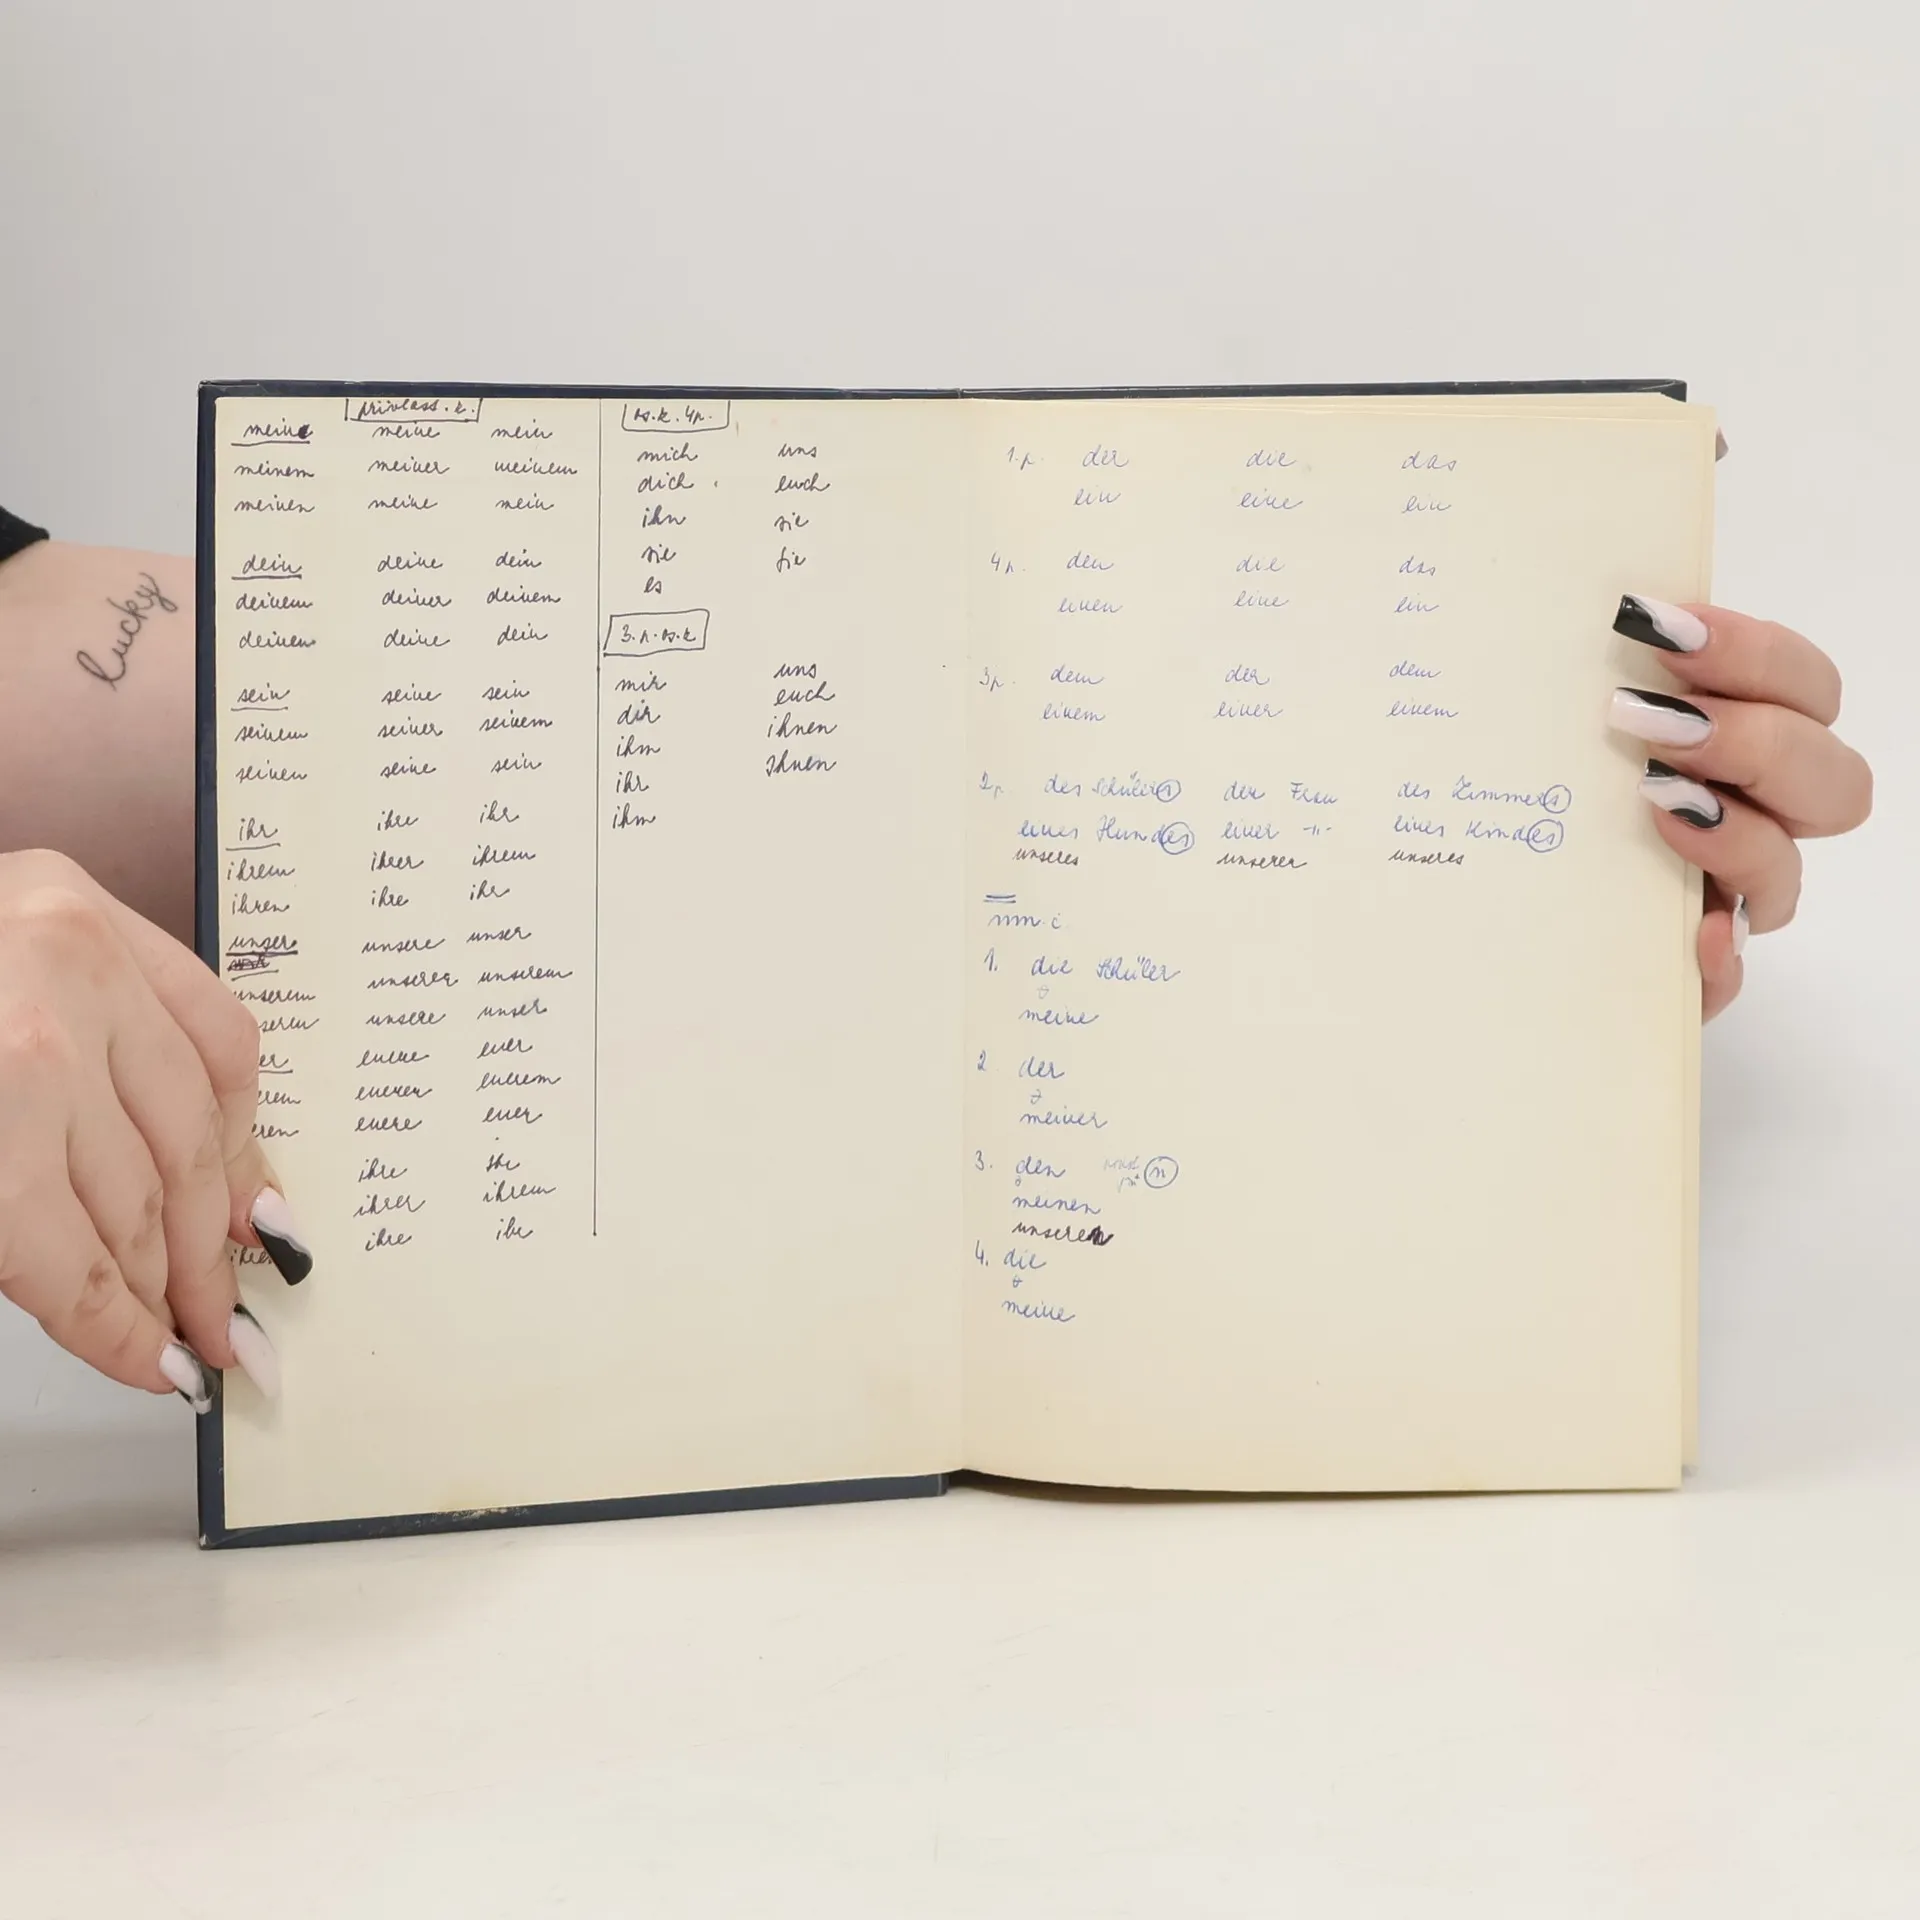 lucky
privlast. z.
meine meine mein
meinem meiner meinem
meinen meine mein
dein deine dein
deinem deiner deinem
deinen deine dein
sein seine sein
seinem seiner seinem
seinen seine sein
ihr ihre ihr
ihrem ihrer ihrem
ihren ihre ihr
unser unsere unser
unserem unserer unserem
seren unsere unser
er euere euer
erem euerer euerem
eren euere euer
ihre ihr
ihrer ihrem
ihren ihre ihr
os. z. 4p.
mich uns
dich euch
ihn sie
sie Sie
es
3. p. os. z
mir uns
dir euch
ihm ihnen
ihr Ihnen
ihm
1. p. der die das
ein eine ein
4p. den die das
einen eine ein
3p. dem der dem
einem einer einem
2p. des Schülers der Frau des Zimmers
eines Hundes einer -"- eines Kindes
unseres unserer unseres
mn. č.
1. die Schüler
meine
2. der
meiner
3. den n
meinen
unseren
4. die
meine